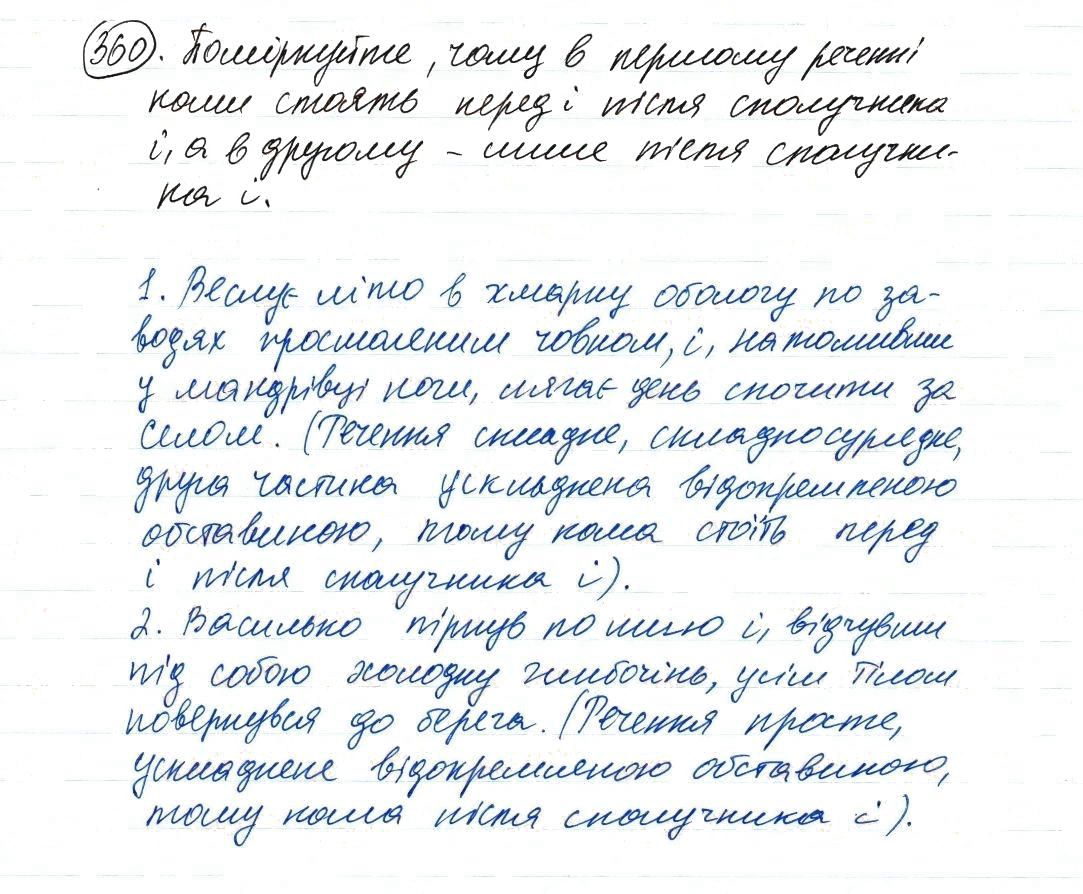 360. Поміркуйте, чому в першому реченні
коми стоять перед і після сполучника
і, а в другому – лише після сполучни-
ка і.
1. Веслує літо в хмарну обологу по за-
водях просмоленим човном, і, натомивши
у мандрівці ноги, лягає день спочити за
селом. (Речення складне, складносурядне,
друга частина ускладнена відокремленою
обставиною, тому кома стоїть перед
і після сполучника і).
2. Василько пірнув по шию і, відчувши
під собою холодну глибочінь, усім тілом
повернувся до берега. (Речення просте,
ускладнене відокремленою обставиною,
тому кома після сполучника і).